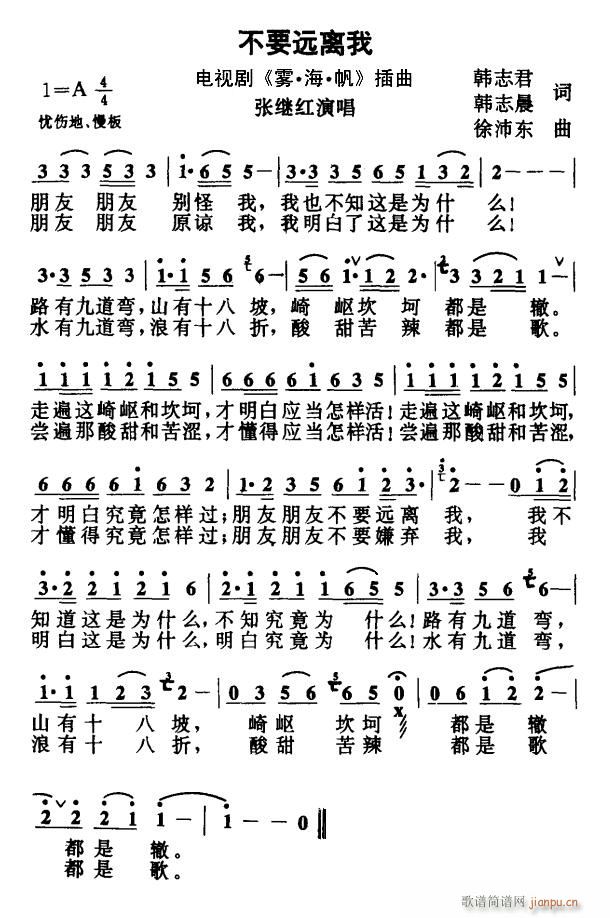 不要远离我
电视剧《雾·海·帆》插曲
1=A 4/4
忧伤地、慢板
张继红演唱
韩志君
韩志晨 词
徐沛东 曲
3 3 3 3 5 3 3 | 1· 6 5 5 - | 3· 3 5 3 5 6 5 1 3 2 | 2 - - - |
朋友 朋友 别怪 我, 我也不知这是为什 么!
朋友 朋友 原谅 我, 我明白了这是为什 么!
3· 3 5 3 3 | 1· 1 5 5 6 - | 5 6 1· 1 2 2· | 3 3 2 1 1 - |
路有九道弯, 山有十八坡, 崎 岖坎 坷 都是 辙。
水有九道弯, 浪有十八折, 酸 甜苦 辣 都是 歌。
1 1 1 1 2 1 5 5 | 6 6 6 6 1 6 3 5 | 1 1 1 1 2 1 5 5 |
走遍这崎岖和坎坷, 才明白应当怎样活! 走遍这崎岖和坎坷,
尝遍那酸甜和苦涩, 才懂得应当怎样活! 尝遍那酸甜和苦涩,
6 6 6 6 1 6 3 2 | 1· 2 3 5 6 1 2 3· | 2 - - 0 1 2 |
才明白究竟怎样过; 朋友朋友不要远离 我, 我不
才懂得究竟怎样过; 朋友朋友不要嫌弃 我, 我
3· 2 2 1 2 1 6 | 2· 1 2 1 1 6 5 5 | 3· 3 5 6 5 6 - |
知道这是为什么, 不知究竟为 什么! 路有九道弯,
明白这是为什么, 明白究竟为 什么! 水有九道弯,
1· 1 1 2 3 2 - | 0 3 5 6 6 5 0 x | 0 6 1 2 2 - |
山有十 八坡, 崎岖 坎坷 都是 辙
浪有十 八折, 酸甜 苦辣 都是 歌
2 2 2 1 1 - | 1 - - 0 ‖
都是 辙。
都是 歌。
歌谱简谱网 jianpu.cn